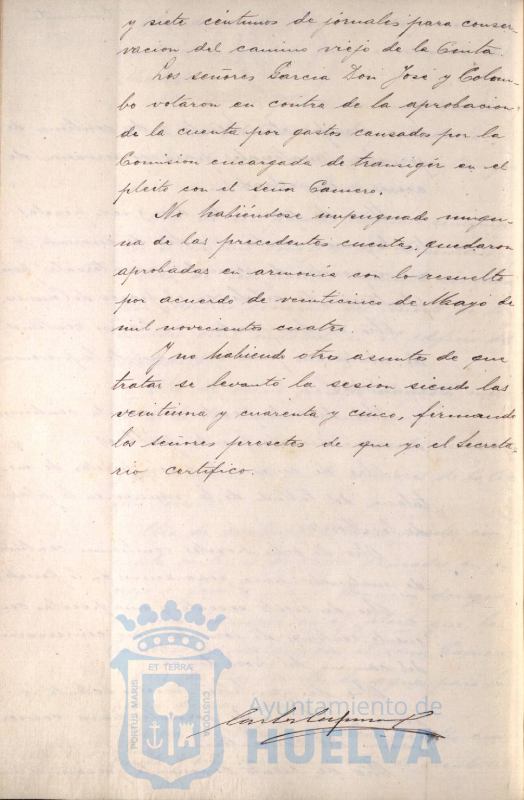 y siete céntimos de jornales para conser-
vacion del camino viejo de la Conta.
Los señores Garcia Don José y Colom-
bo votaron en contra de la aprobacion
de la cuenta por gastos causados por la
Comision encargada de transigir en el
pleito con el señor
No habiéndose impugnado ningu-
na de las precedentes cuentas, quedaron
aprobadas en armonia con lo resuelto
por acuerdo de veinticinco de Mayo de
mil novecientos cuatro.
Y no habiendo otro asuntos de que
tratar se levantó la sesion siendo las
veintiuna y cuarenta y cinco, firmando
los señores presetes de que yo el Secreta-
rio certifico.
ET TERRÆ
PORTUS MARIS
CUSTODI
Ayuntamiento de
HUELVA